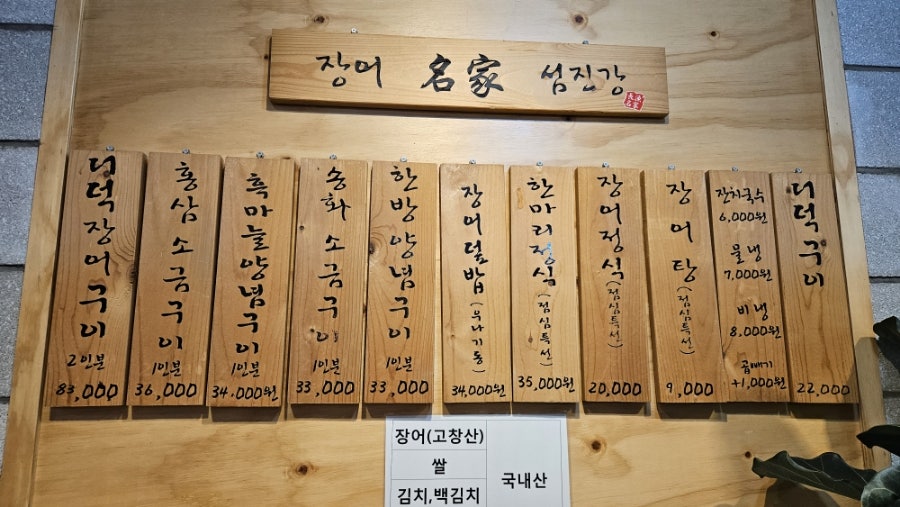 장어 名家 섬진강
더덕장어구이
2인분
83,000
홍삼소금구이
1인분
36,000
흑마늘양념구이
1인분
34,000원
송화소금구이
1인분
33,000
한방양념구이
1인분
33,000
장어덮밥(우나기동)
34,000원
한마리정식(점심특선)
35,000원
장어정식(점심특선)
20,000
장어탕(점심특선)
9,000
잔치국수
6,000원
물냉
7,000원
비냉
8,000원
곱빼기
+1,000원
더덕구이
22,000
장어(고창산)
쌀
김치,백김치
국내산